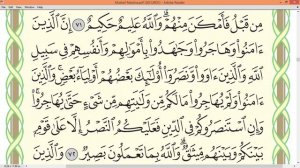 مِن قَبْلُ فَأَمْكَنَ مِنْهُمْ وَٱللَّهُ عَلِيمٌ حَكِيمٌ ٧١ إِنَّ ٱلَّذِينَ
ءَامَنُوا۟ وَهَاجَرُوا۟ وَجَٰهَدُوا۟ بِأَمْوَٰلِهِمْ وَأَنفُسِهِمْ فِى سَبِيلِ
ٱللَّهِ وَٱلَّذِينَ ءَاوَوا۟ وَّنَصَرُوٓا۟ أُو۟لَٰٓئِكَ بَعْضُهُمْ أَوْلِيَآءُ بَعْضٍ وَٱلَّذِينَ
ءَامَنُوا۟ وَلَمْ يُهَاجِرُوا۟ مَا لَكُم مِّن وَلَٰيَتِهِم مِّن شَىْءٍ حَتَّىٰ يُهَاجِرُوا۟
وَإِنِ ٱسْتَنصَرُوكُمْ فِى ٱلدِّينِ فَعَلَيْكُمُ ٱلنَّصْرُ إِلَّا عَلَىٰ قَوْمٍۭ
بَيْنَكُمْ وَبَيْنَهُم مِّيثَٰقٌ وَٱللَّهُ بِمَا تَعْمَلُونَ بَصِيرٌ ٧٢ وَٱلَّذِينَ